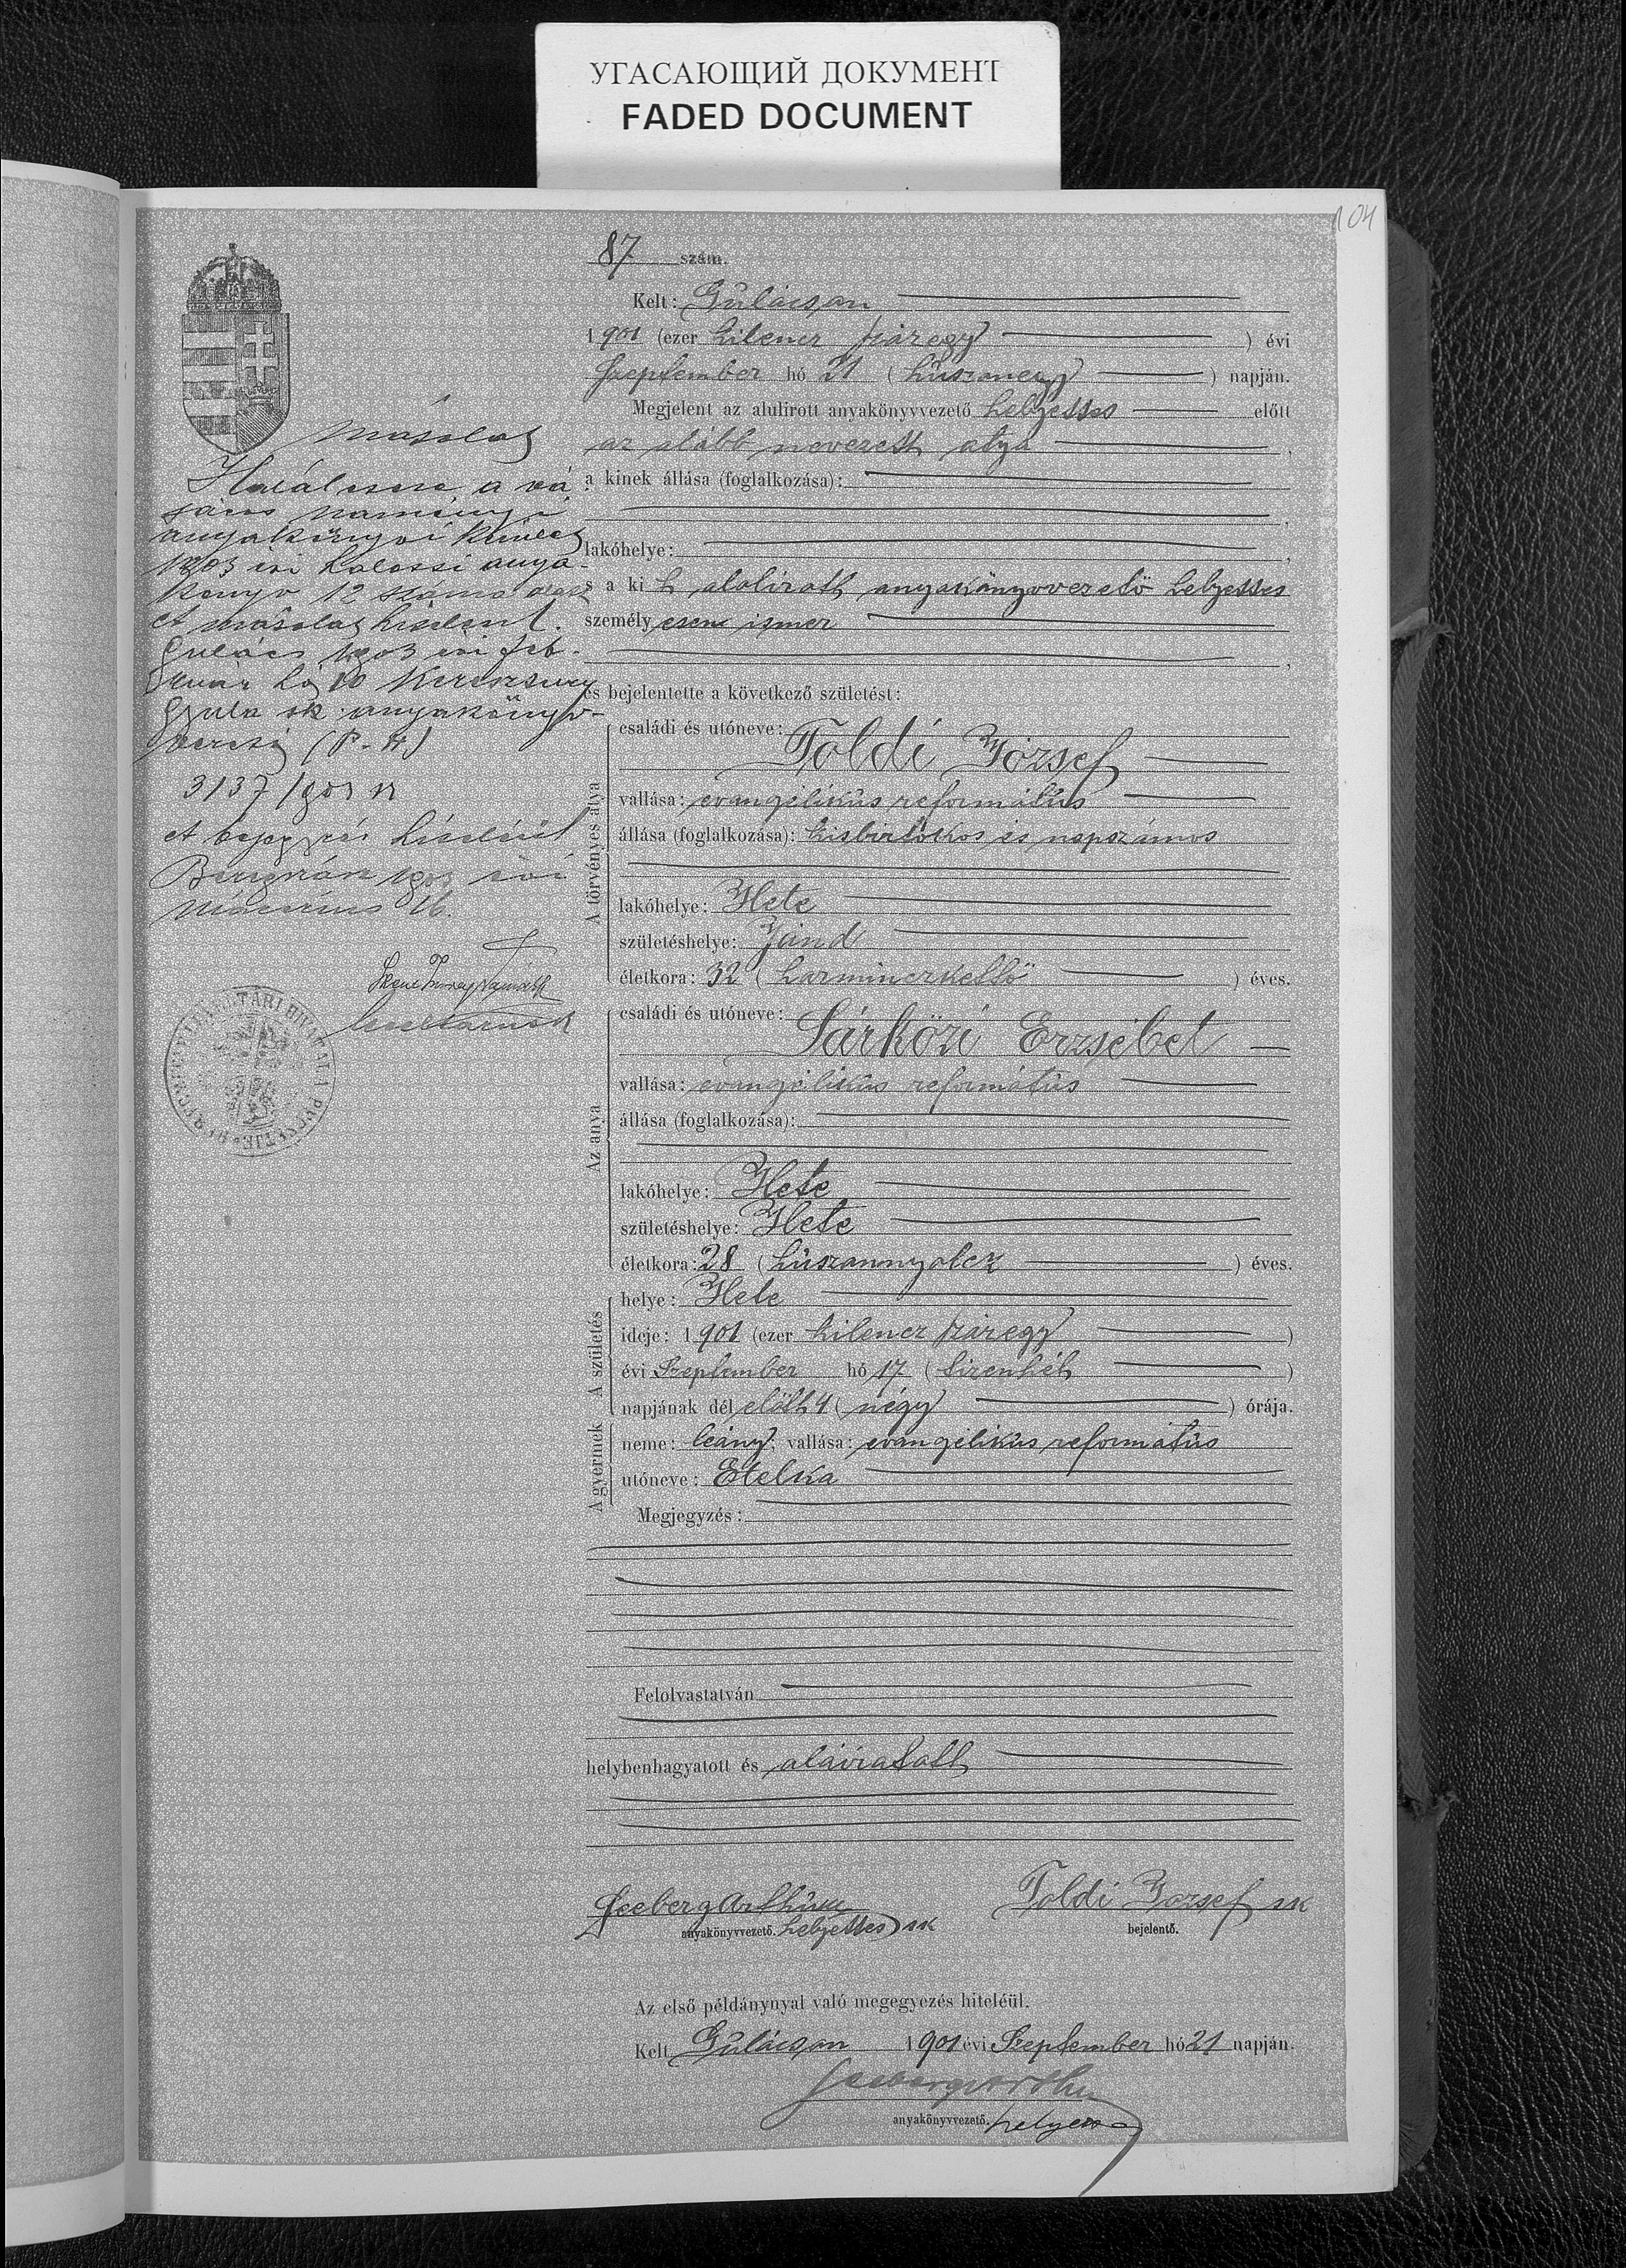 УГАСАЮЩИЙ ДОКУМЕНТ
FADED DOCUMENT
104
87 szám.
Kelt: Gulácson
1901 (ezer kilencz száregy) évi
Szeptember hó 21 (húszonegy) napján.
Megjelent az alulirott anyakönyvvezető helyettes előtt
az alább nevezett atya,
a kinek állása (foglalkozása):
lakóhelye:
s a ki t alolirott anyakönyvvezető helyettes
személyesen ismer
és bejelentette a következő születést:
A törvényes atya
családi és utóneve:
Toldi József
vallása: evangélikús református
állása (foglalkozása): kisbirtokos és napszámos
lakóhelye: Hete
születéshelye: Jánd
életkora: 32 (harminczkettő) éves.
Az anya
családi és utóneve:
Sárközi Erzsébet
vallása: evangélikús református
állása (foglalkozása):
lakóhelye: Hete
születéshelye: Hete
életkora: 28 (húszonnyolcz) éves.
A születés
helye: Hete
ideje: 1901 (ezer kilencz száregy)
évi Szeptember hó 17 (tizenhét)
napjának dél előtt 4 (négy) órája.
A gyermek
neme: leány; vallása: evangélikús református
utóneve: Etelka
Megjegyzés:
Felolvastatván
helybenhagyatott és aláíratott
Seeberg Arthúr
anyakönyvvezető. helyettes sk
Toldi József sk
bejelentő.
Az első példánynyal való megegyezés hiteléül.
Kelt Gulácson 1901 évi Szeptember hó 21 napján.
Seeberg Arthur
anyakönyvvezető. helyettes
másolat
Halálesete a vá-
sáros naményi
anyakönyvi kerület
1903 évi halotti anya-
könyv 12 száma alatt
et másolat hiteléül.
Gulács 1903 évi feb-
ruár hó 10
Gyula sk. anyakönyv-
vezető (P. H.)
3137/903 sz
et bejegyzés hiteléül
Beregszász 1903 évi
márczius 16.